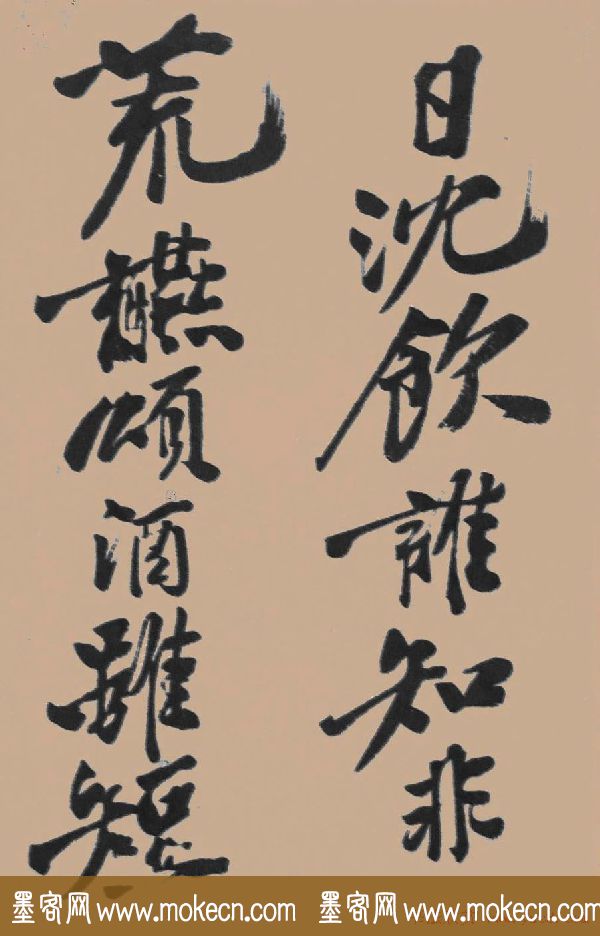 日沈飲誰知非
荒讌頌酒雖短
墨客网 www.mokecn.com 墨客网 www.mokecn.com